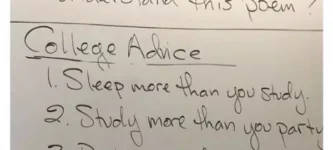 this poem?
College Advice
1. Sleep more than you study.
2. Study more than you party